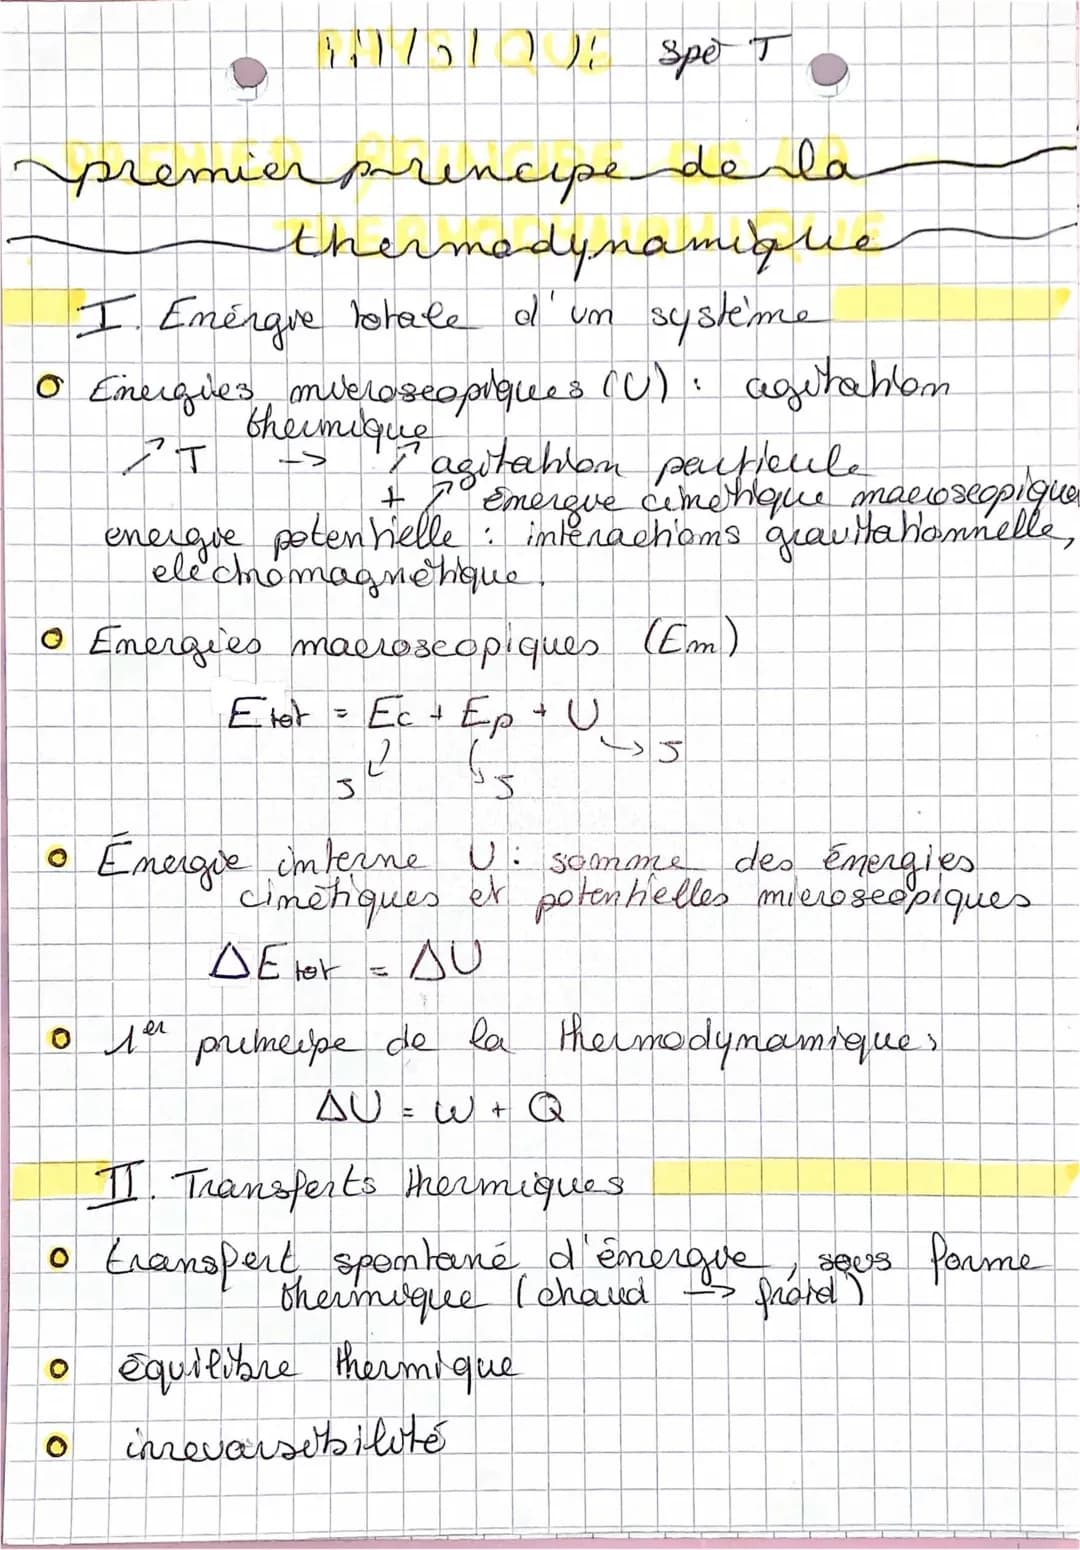 PHYSIQUE Spé T
premier principe de la
thermodynamique
I. Énergie totale d'un système
Énergies microscopiques (U) : agitation
thermique
↗ T -> ↗ agitation particule
+ ↗ énergie cinétique macroscopique
energie potentielle : intéractions gravitationnelle,
électromagnétique.
Energies macroscopiques (Em)
E tot = Ec + Ep + U
↳ J
J ↳ J
Énergie interne U : somme des énergies
cinétiques et potentielles microscopiques
ΔE tot = ΔU
1er principe de la thermodynamique,
ΔU = W + Q
II. Transferts thermiques
transfert spontané d'énergie, sous forme
thermique (chaud -> froid)
équilibre thermique
irreversibilité